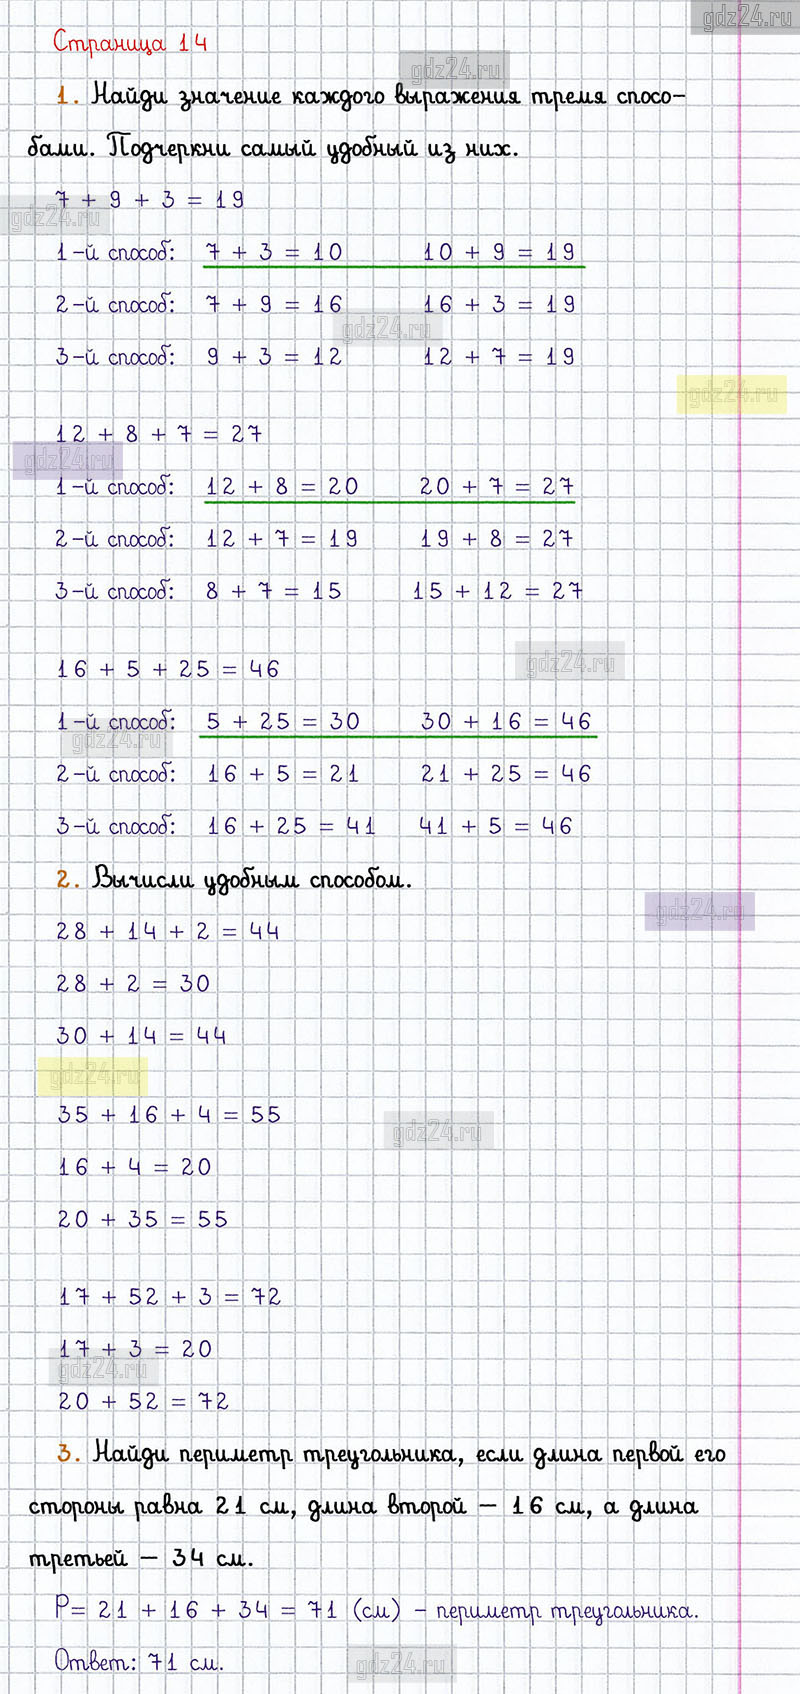 gdz24.ru
Страница 14
gdz24.ru
1. Найди значение каждого выражения тремя спосо-
бами. Подчеркни самый удобный из них.
7 + 9 + 3 = 19
gdz24.ru
1-й способ: 7 + 3 = 10 10 + 9 = 19
2-й способ: 7 + 9 = 16 16 + 3 = 19
gdz24.ru
3-й способ: 9 + 3 = 12 12 + 7 = 19
gdz24.ru
12 + 8 + 7 = 27
gdz24.ru
1-й способ: 12 + 8 = 20 20 + 7 = 27
2-й способ: 12 + 7 = 19 19 + 8 = 27
3-й способ: 8 + 7 = 15 15 + 12 = 27
gdz24.ru
16 + 5 + 25 = 46
1-й способ: 5 + 25 = 30 30 + 16 = 46
gdz24.ru
2-й способ: 16 + 5 = 21 21 + 25 = 46
3-й способ: 16 + 25 = 41 41 + 5 = 46
2. Вычисли удобным способом.
gdz24.ru
28 + 14 + 2 = 44
28 + 2 = 30
30 + 14 = 44
gdz24.ru
35 + 16 + 4 = 55
gdz24.ru
16 + 4 = 20
20 + 35 = 55
17 + 52 + 3 = 72
17 + 3 = 20
gdz24.ru
20 + 52 = 72
3. Найди периметр треугольника, если длина первой его
стороны равна 21 см, длина второй – 16 см, а длина
третьей – 34 см.
P= 21 + 16 + 34 = 71 (см) – периметр треугольника.
Ответ: 71 см.
gdz24.ru